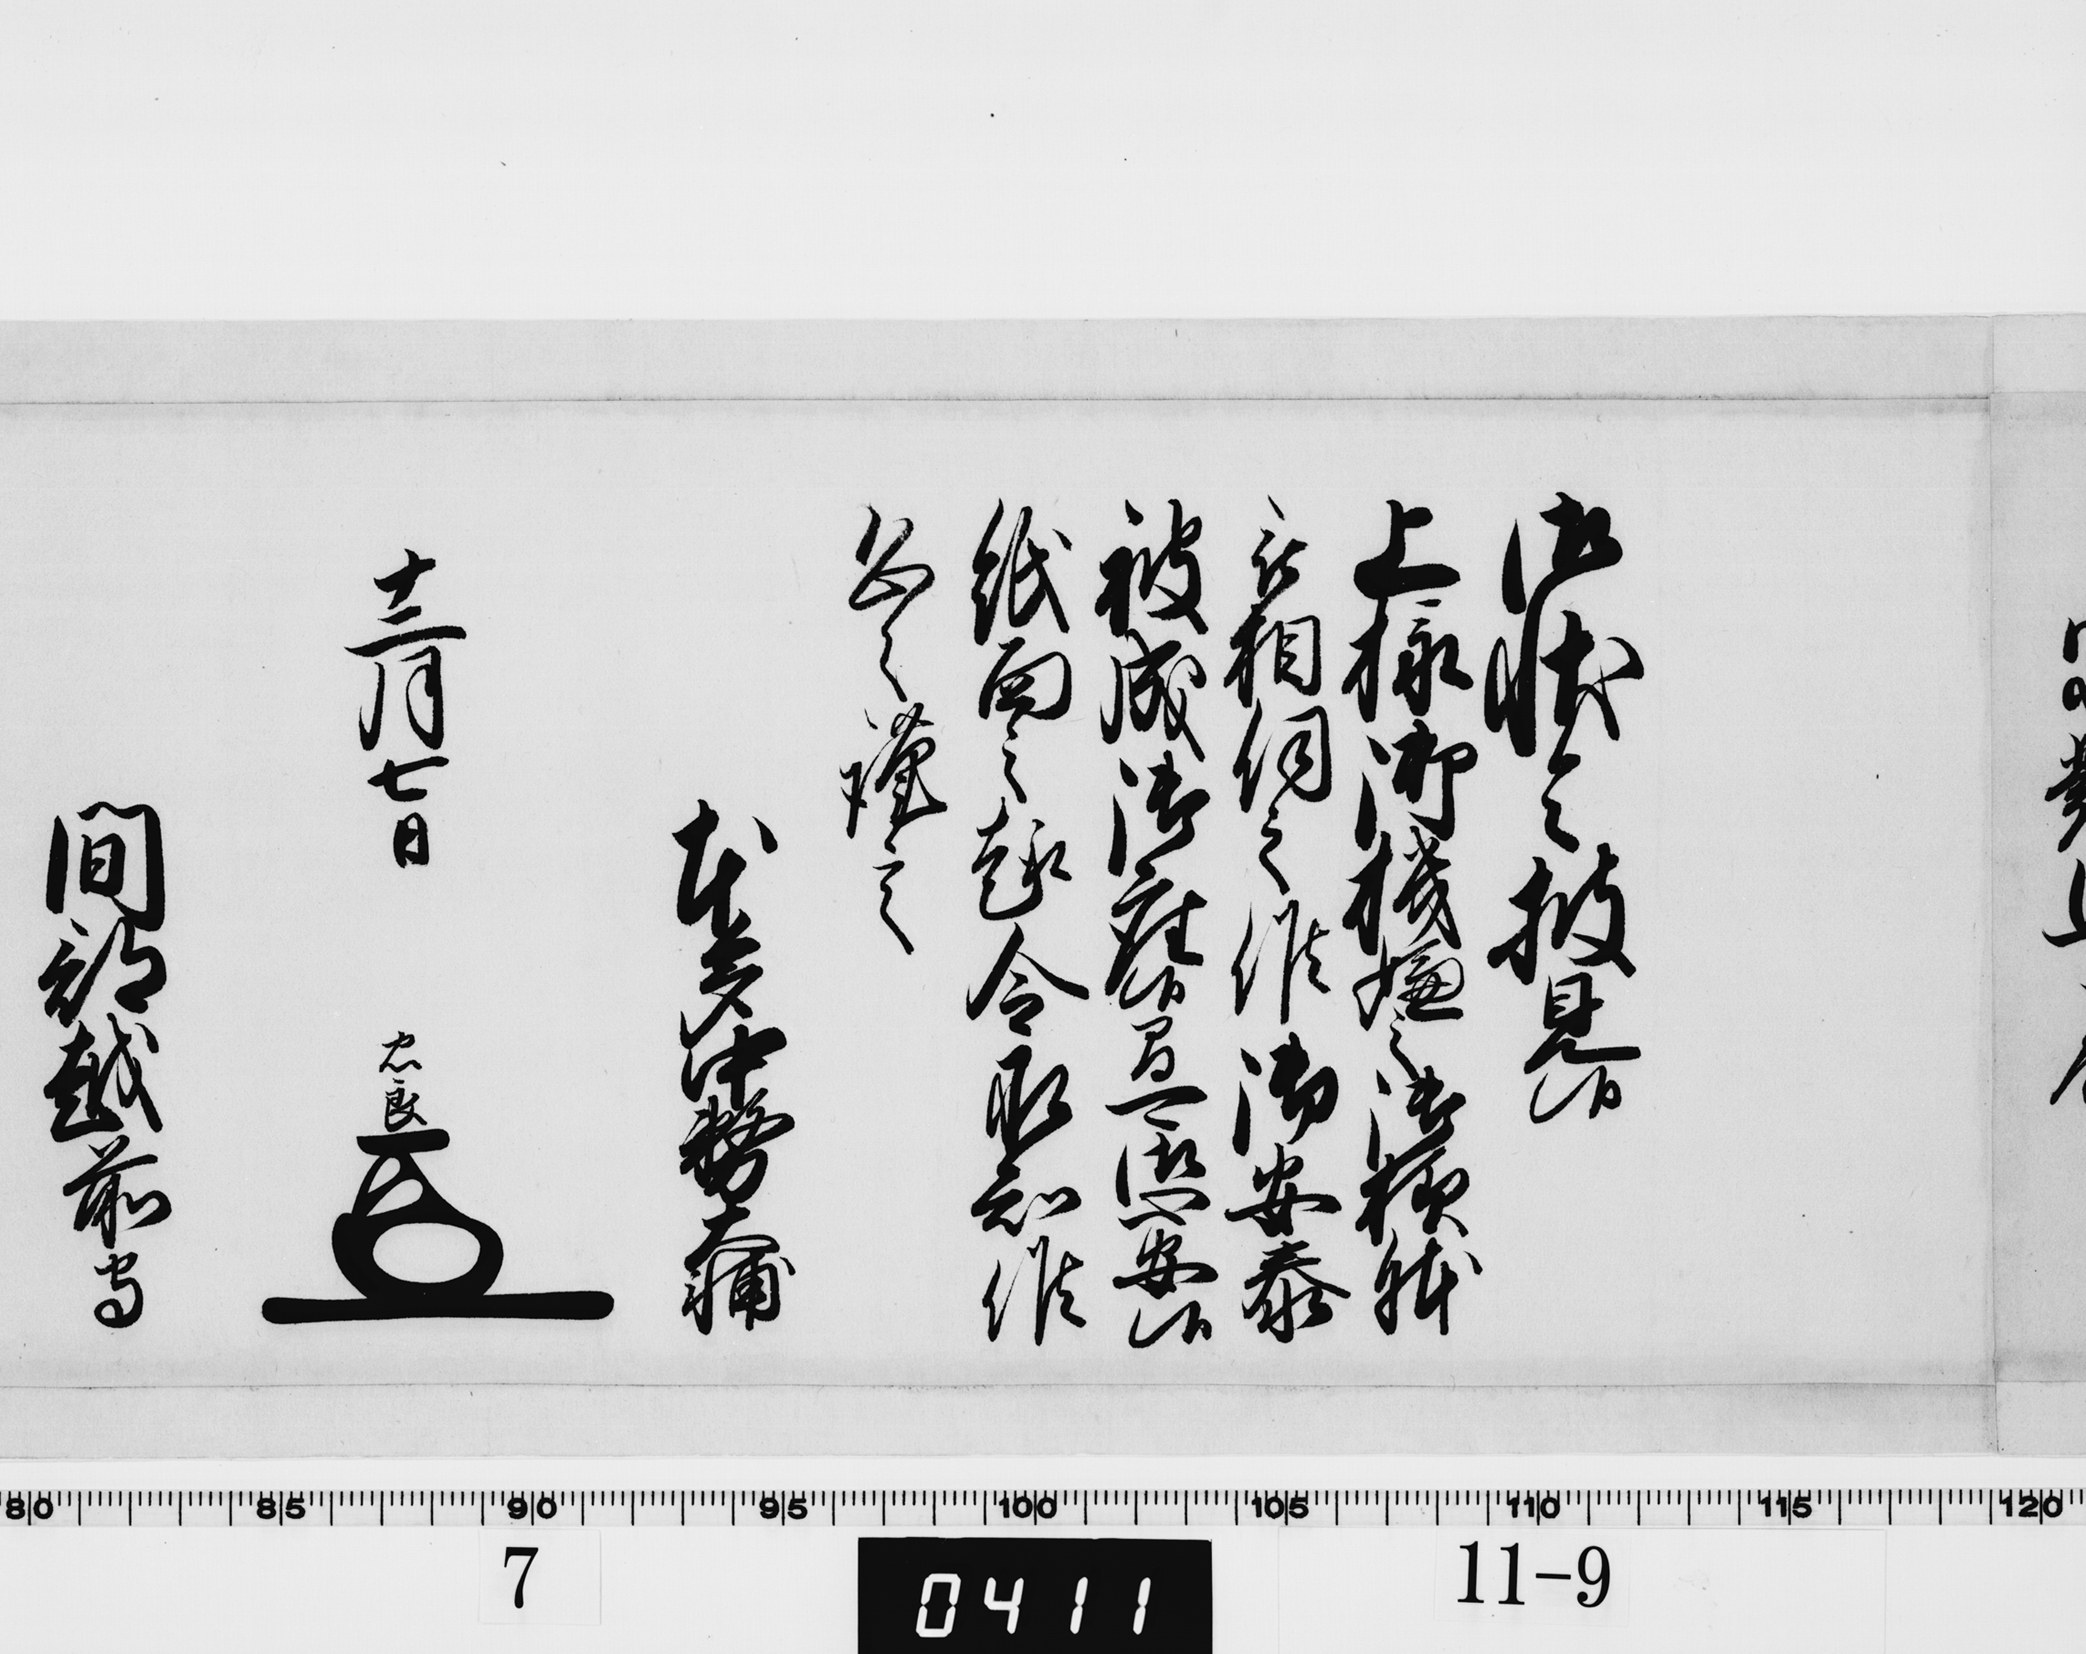 御状令披見候
上様御機嫌之御様躰
被相伺之候御安泰
被成御座候間可御心安候
紙面之趣令承知候
恐々謹言
本多中務大輔
十二月七日
忠良
間部越前守
80 85 90 95 100 105 110 115 120
7
0411
11-9